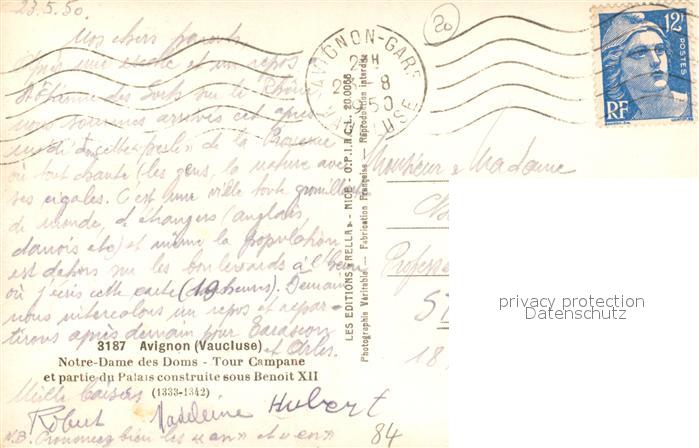 23.5.50
Mes chers parents,
Après une et un repos
à St Etienne des Sorts sur le Rhône
nous sommes arrivés cet après
midi dans cette "perle" de la Provence
où tout chante (les gens, la nature avec
ses cigales. C'est une ville toute grouillante
de monde, d'étrangers (anglais,
danois etc) et même la population
est dehors sur les boulevards à l'heure
où j'écris cette carte (19 heures). Demain
nous intercalons un repos et repar-
tirons après demain pour Tarascon
et Arles.
3187 Avignon (Vaucluse)
Notre-Dame des Doms - Tour Campane
et partie du Palais construite sous Benoit XII
(1333-1342)
Mille baisers
Robert Madeleine Hubert
N.B. Prononcez bien les "an" et "en"
84
LES EDITIONS "RELLA" - NICE - O.P.I.N.C.L. 20.0066
Photographie Véritable - Fabrication Française - Reproduction interdite
20
AVIGNON-GARE
VAUCLUSE
12F
POSTES
RF
Monsieur & Madame
Profess
18,
privacy protection
Datenschutz